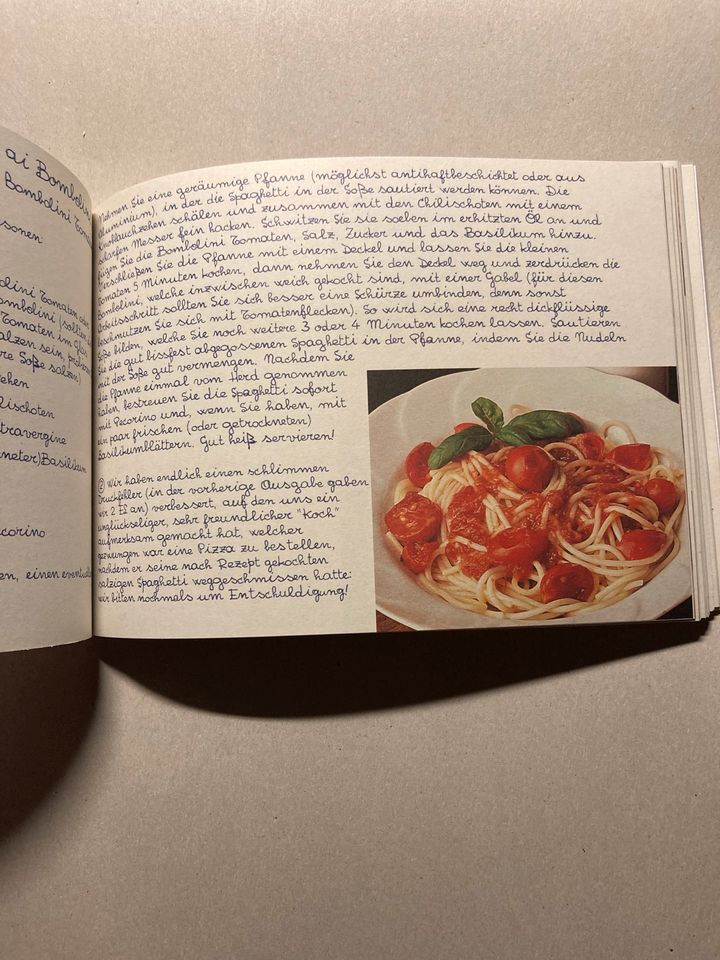 ai Bombolin
Bombolini Tomat
sonen:
olini Tomaten oder
ombolini (sollten
Tomaten im Glas
alzen sein,
re Soße salzen)
ehen
lischoten
travergine
neter) Basilikum
ecorino
en, einen eventuell
Nehmen Sie eine geräumige Pfanne (möglichst antihaftbeschichtet oder aus
Aluminium), in der die Spaghetti in der Soße sautiert werden können. Die
Knoblauchzehen schälen und zusammen mit den Chilischoten mit einem
scharfen Messer fein hacken. Schwitzen Sie sie soeben im erhitzten Öl an und
fügen Sie die Bombolini Tomaten, Salz, Zucker und das Basilikum hinzu.
Verschließen Sie die Pfanne mit einem Deckel und lassen Sie die kleinen
Tomaten 5 Minuten kochen, dann nehmen Sie den Deckel weg und zerdrücken die
Bombolini, welche inzwischen weich gekocht sind, mit einer Gabel (für diesen
Arbeitsschritt sollten Sie sich besser eine Schürze umbinden, denn sonst
beschmutzen Sie sich mit Tomatenflecken). So wird sich eine recht dickflüssige
Soße bilden, welche Sie noch weitere 3 oder 4 Minuten kochen lassen. Sautieren
Sie die gut bissfest abgegossenen Spaghetti in der Pfanne, indem Sie die Nudeln
mit der Soße gut vermengen. Nachdem Sie
die Pfanne einmal vom Herd genommen
haben, bestreuen Sie die Spaghetti sofort
mit Pecorino und, wenn Sie haben, mit
ein paar frischen (oder getrockneten)
Basilikumblättern. Gut heiß servieren!
② Wir haben endlich einen schlimmen
Druckfehler (in der vorherige Ausgabe gaben
wir 2 EL an) verbessert, auf den uns ein
unglückseliger, sehr freundlicher "Koch"
aufmerksam gemacht hat, welcher
gezwungen war eine Pizza zu bestellen,
nachdem er seine nach Rezept gekochten
salzigen Spaghetti weggeschmissen hatte:
wir bitten nochmals um Entschuldigung!